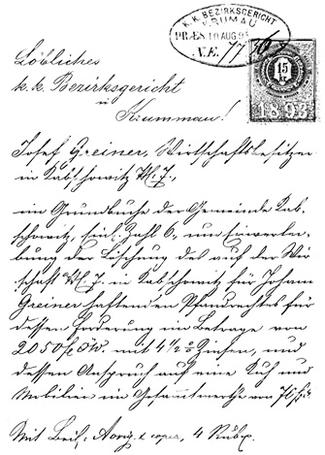 K. K. BEZIRKSGERICHT
KRUMAU
PRÆS. 10 AUG. 95
N.E. 77
15
kr.
1893
Löbliches
k. k. Bezirksgericht
in
Krummau!
Josef Greiner, Wirtschaftsbesitzer
in Kabschowitz № 7,
im Grundbuche der Gemeinde Kab-
schowitz, Einl. Zahl 6, um Einverlei-
bung der Löschung des auf der Wir
schaft № 7 in Kabschowitz für Johann
Greiner haftenden Pfandrechtes für
dessen Forderung im Betrage von
2050 fl ÖW. mit 4½% Zinsen, und
dessen Anspruch auf eine Kuh und
Mobilien im Gesammtwerthe von 70 fl
Mit Beil: 4 Rubr.